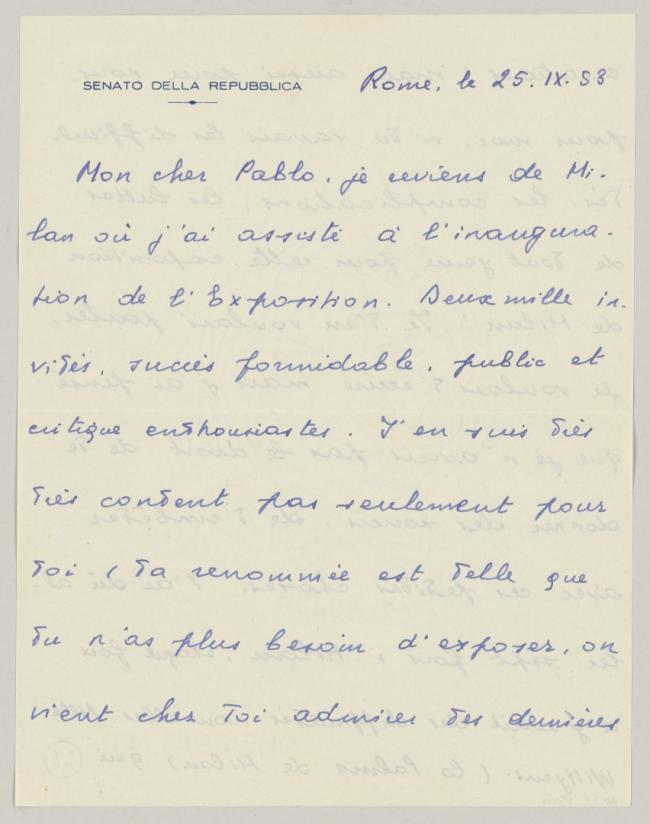 SENATO DELLA REPUBBLICA
Rome, le 25.IX.53
Mon cher Pablo, je reviens de Mi-
lan où j'ai assisté à l'inaugura-
tion de l'Exposition. Deux mille in-
vités, succès formidable, public et
critique enthousiastes. J'en suis très
très content pas seulement pour
toi (ta renommée est telle que
tu n'as plus besoin d'exposer, on
vient chez toi admirer tes dernières